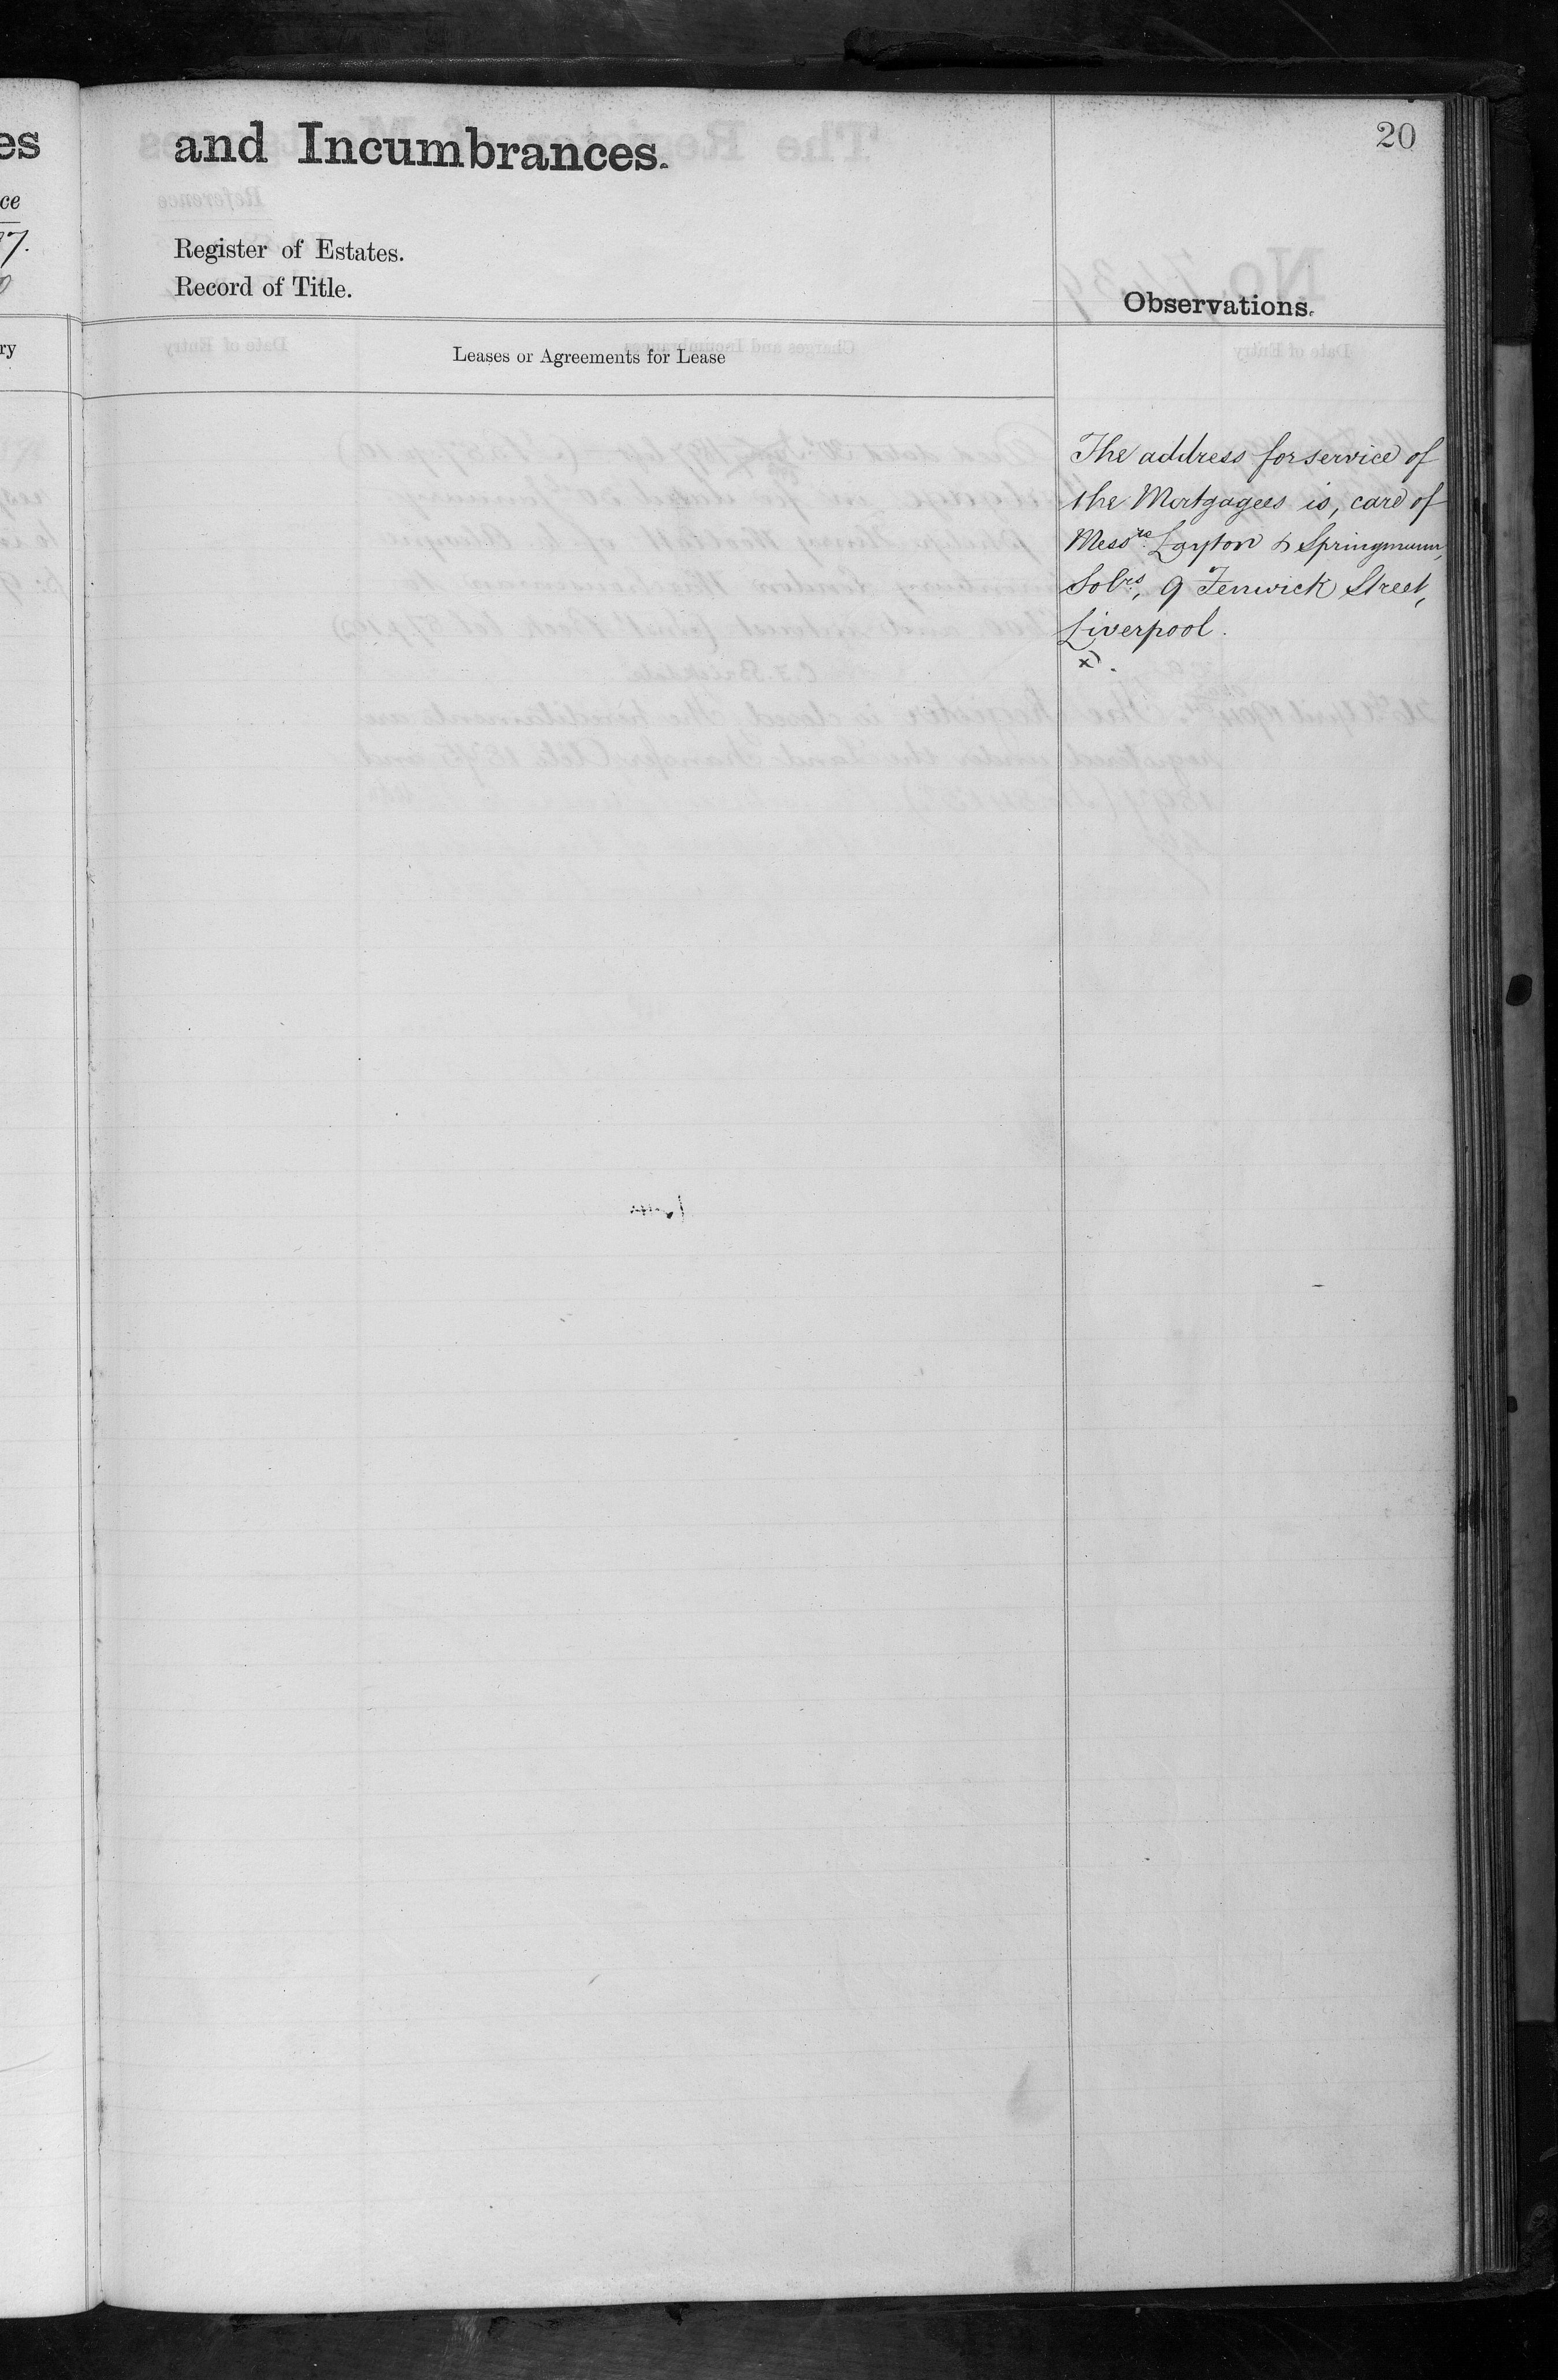 20
and Incumbrances.
Register of Estates.
Record of Title.
Observations.
Leases or Agreements for Lease
The address for service of
the Mortgagees is, care of
Messrs. Layton & Springmann,
Solrs, 9 Fenwick Street,
Liverpool.
es
ce
7.
ry